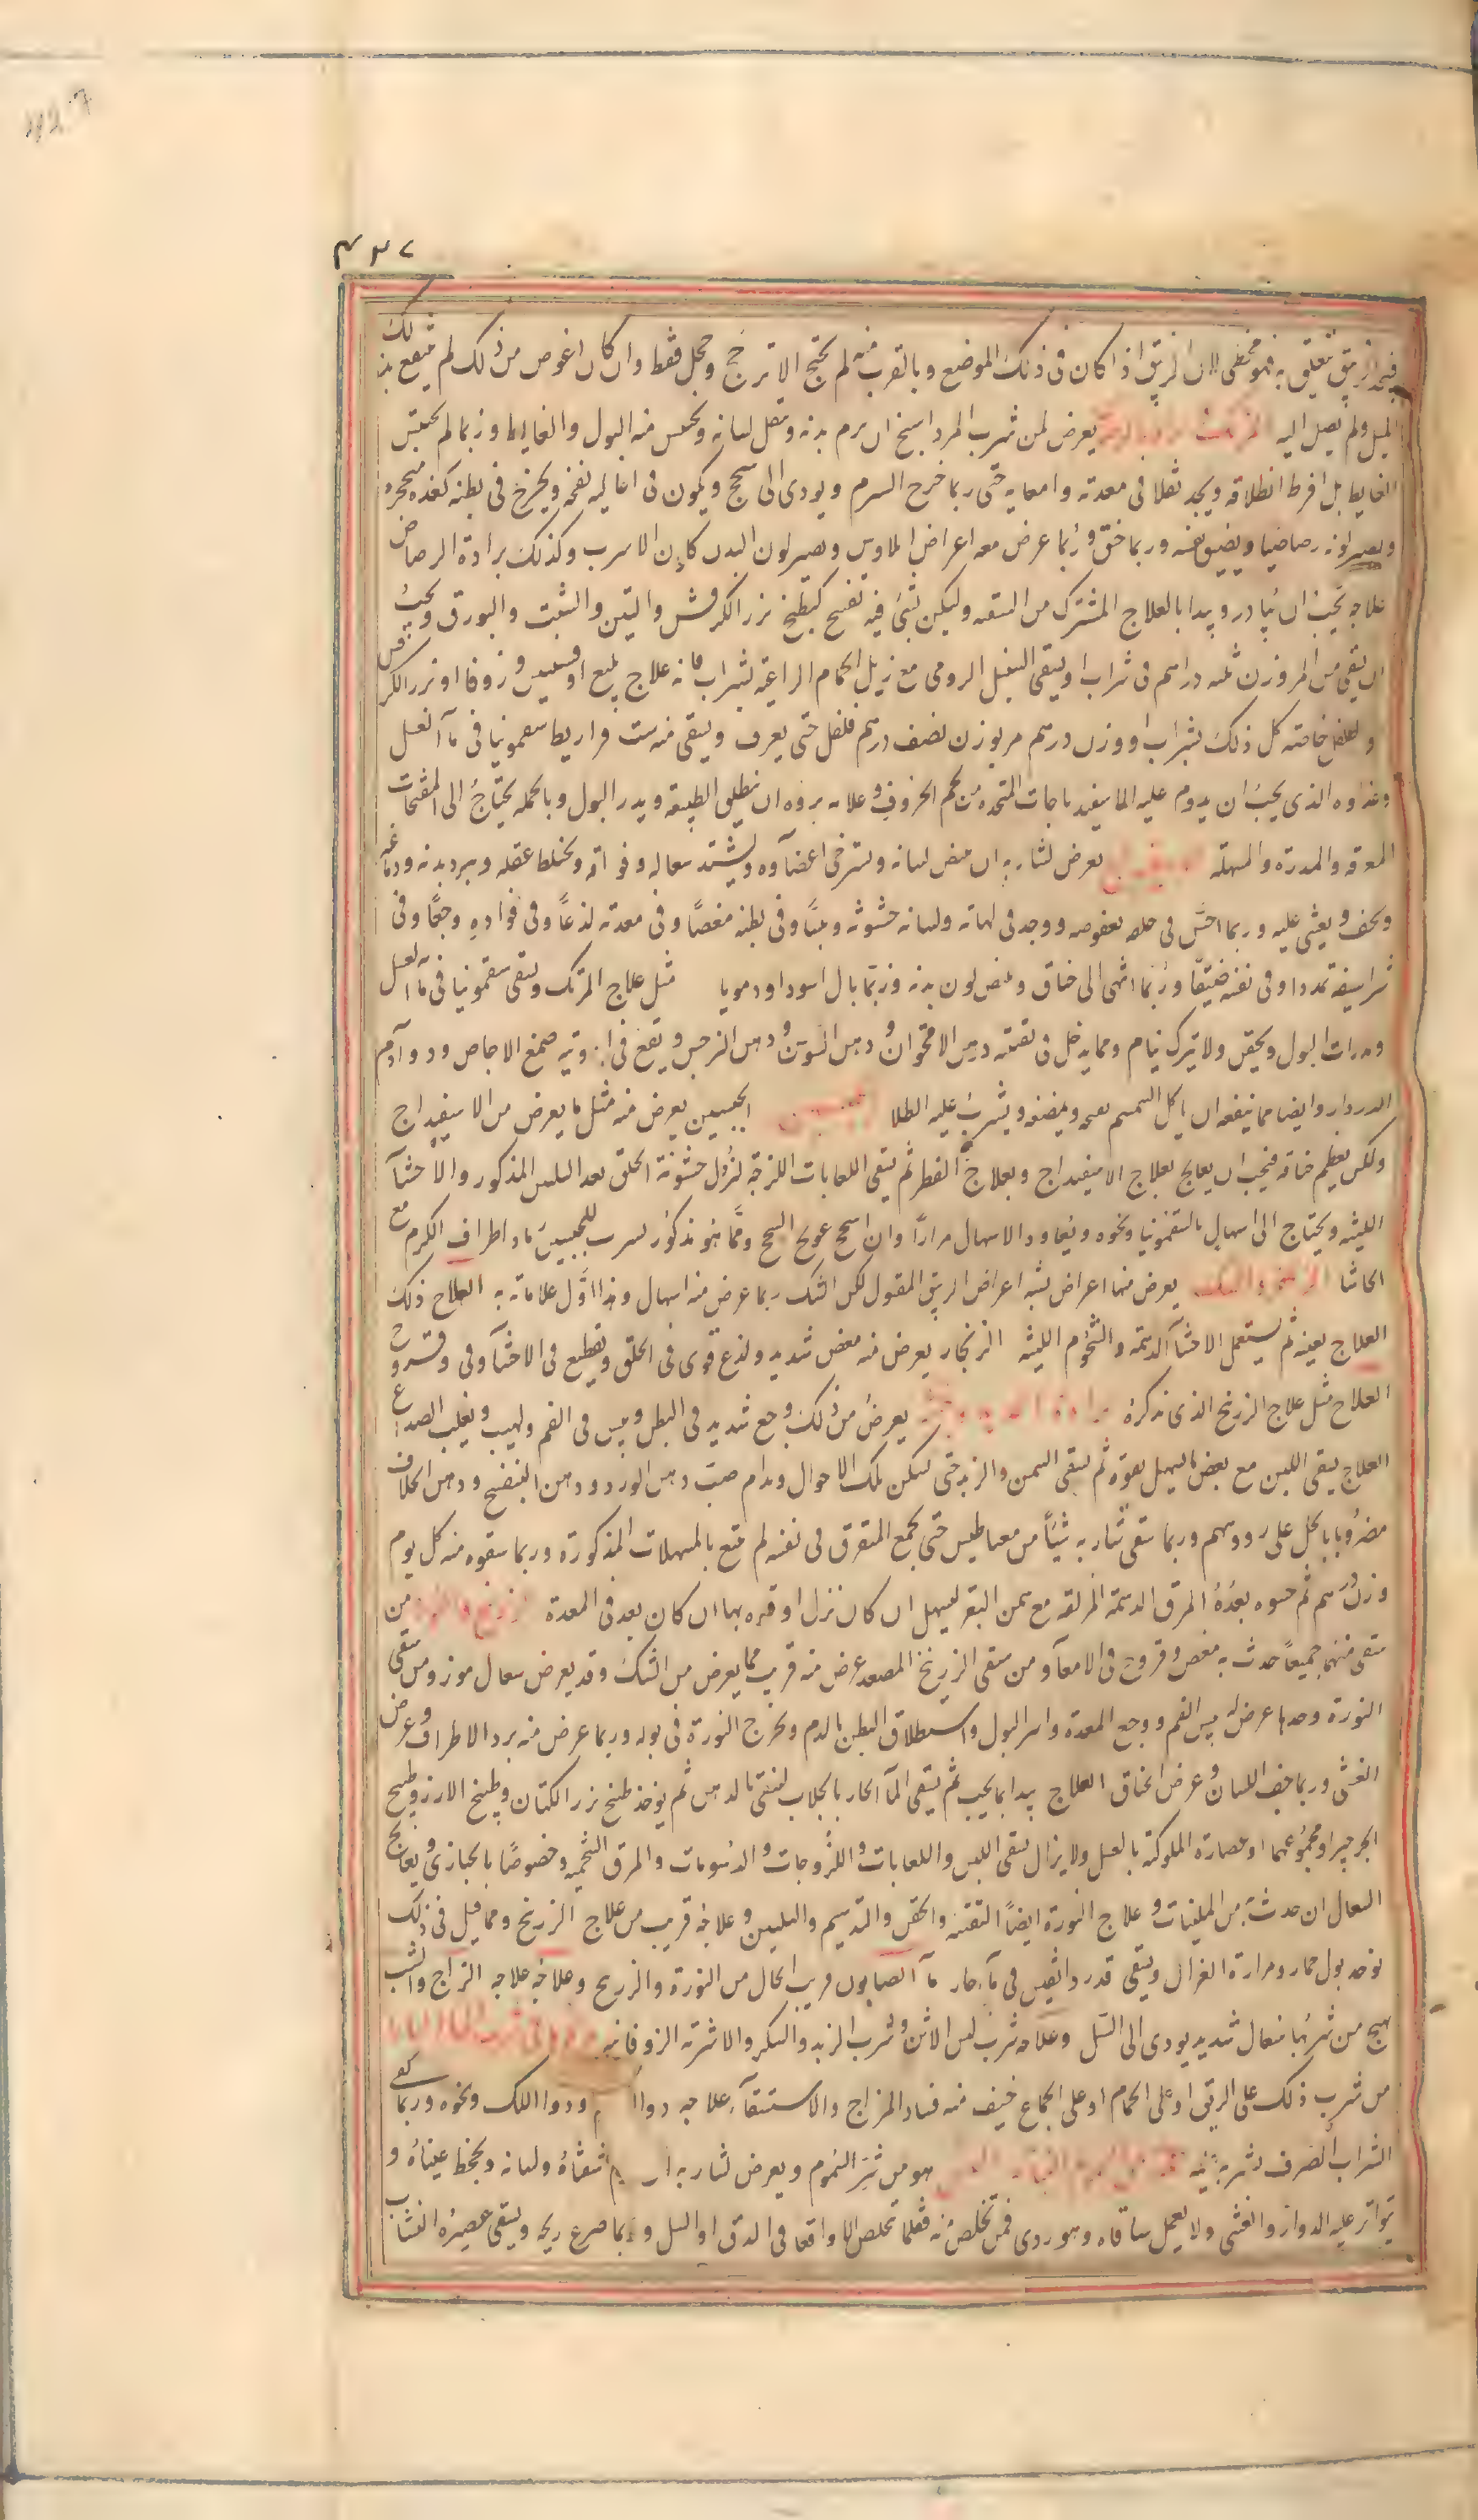 ٤٣٧
الزيبق تتعلق به فهو مخطى لان الزيبق اذا كان فى ذلك الموضع وبالقرب منه لم يحتج الا ترجح وحجل فقط وان كان اغوص من ذلك لم ينتفع بذلك
الميل ولم يصل اليه يعرض لمن شرب المرداسنج ان يرم بدنه وثقل لسانه ويحتبس منه البول والغايط وربما لم يحتبس
الغايط بل افرط انطلاقه ويجد ثقلا فى معدته وامعايه حتى ربما خرج السرم ويودى الى سحج ويكون فى اعاليه نفخه ويخرج فى بطنه كغده متحجره
ويصير لونه رصاصيا ويضيق نفسه وربما خنق وربما عرض معه اعراض ايلاوس ويصير لون البدن كلون الاسرب وكذلك برادة الرصاص
علاجه يجب ان يبادر ويبدا بالعلاج المشترك من التنقيه وليكن بشى فيه تفتيح كطبيخ بزر الكرفس والتين والشبت والبورق ويجب
ان يسقى من المر وزن ثلثه دراهم فى شراب او يسقى السنبل الرومى مع زبل الحمام الراعيه بشراب فانه علاج بليغ او افسنتين وزوفا او بزر الكرفس
والفلفل خاصة كل ذلك بشراب او وزن درهم مر بوزن نصف درهم فلفل حتى يعرق ويسقى منه ست قراريط سقمونيا فى ماء العسل
وغذاوه الذى يجب ان يدوم عليه الاسفيدباجات المتخذه من لحم الخروف وعلامه بروه ان ينطلق الطبيعة ويدر البول وبالجمله يحتاج الى المفتحات
المعرقه والمدرة والمسهله يعرض لشاربه ان يبيض لسانه وتسترخى اعضاوه ويشتد سعاله وفواقه ويختلط عقله ويبرد بدنه ودماغه
ويجف ويغشى عليه وربما احس فى حلقه بعفوصه ووجد فى لهاته ولسانه خشونه ويبسا وفى بطنه مغصا وفى معدته لذعا وفى فواده وجعا وفى
شراسيفه تمددا وفى نفسه ضيقا وربما انتهى الى خناق ويبيض لون بدنه وربما بال اسود او دمويا مثل علاج المرتك ويسقى سقمونيا فى ماء العسل
ومدرات البول ويحقن ولا يترك ينام ومما يدخل فى سقيه دهن الاقحوان ودهن السوسن ودهن النرجس ويقع فى ادويته صمغ الاجاص ودواادم
الدردار وايضا مما ينفعه ان ياكل السمسم ويمضغه ويشرب عليه الطلا الجبسين يعرض منه مثل ما يعرض من الاسفيداج
ولكن يعظم خناقه فيجب ان يعالج بعلاج الاسفيداج وبعلاج الفطر ثم يسقى اللعابات اللزجة لتزول خشونة الحلق بعد التليين المذكور والاحشا
اللينه ويحتاج الى اسهال بالسقمونيا ونحوه ويعاود الاسهال مرارا وان اسحج عولج السحج ومما هو مذكور لشرب الجبسين رماد اطراف الكرم مع
الحاشا يعرض منها اعراض يشبه اعراض الزيبق المقتول لكن الشك ربما عرض منه اسهال وهذا اول علاماته به العلاج ذلك
العلاج بعينه ثم يستعمل الاحشا الدسمة والشحوم اللينه الزنجار يعرض منه مغص شديد ولذع قوى فى الحلق وتقطيع فى الاحشا وقى وقروح
العلاج مثل علاج الزرنيخ الذى نذكره يعرض من ذلك وجع شديد فى البطن ويبس فى الفم ولهيب ويغلب الصداع
العلاج يسقى اللبن مع بعض ما يسهل بقوة ثم يسقى السمن والزبد حتى تسكن تلك الاحوال ويدام صب دهن الورد ودهن البنفسج ودهن الخلاف
مضروبا بالخل على رووسهم وربما سقى شاربه شيئا من مغناطيس حتى يجمع المتفرق فى نفسه ثم يتبع بالمسهلات المذكورة وربما سقوه منه كل يوم
وزن درهم ثم حسوه بعده المرق الدسمة المزلقه مع سمن البقر ليسهل ان كان نزل او قذفه بها ان كان بعد فى المعدة من
سقى منهما جميعا حدث به مغص وقروح فى الامعآ ومن سقى الزرنيخ المصعد عرض منه قريب مما يعرض من الشك وقد يعرض سعال موذ ومن سقى
النورة وحدها عرض له يبس الفم ووجع المعدة واسر البول واستطلاق البطن بالدم وتخرج النورة فى بوله وربما عرض منه برد الاطراف وعرض
الغشى وربما جف اللسان وعرض الخناق العلاج يبدا بما يجب ثم يسقى المآ الحار بالجلاب لينقى بالدهن ثم يوخذ طبيخ بزر الكتان وطبيخ الارز وطبيخ
الجرجير او مجموعها او عصارة الملوكية بالعسل ولا يزال يسقى اللبن واللعابات واللزوجات والدسومات والمرق الشحميه وخصوصا بالخبازى ويعالج
السعال ان حدث من الملينات وعلاج النورة ايضا التنقيه والحقن والتدسيم والتليين وعلاجه قريب من علاج الزرنيخ ومما قيل فى ذلك
يوخذ بول حمار ومرارة الغزال ويسقى قدر دانقين فى مآ حار مآ الصابون قريب الحال من النورة والزرنيخ وعلاجه علاجه الزاج والشب
يهيج من شربها سعال شديد يودى الى السل وعلاجه شرب لبن الاتن وشرب الزبد والسكر والاشربة الزوفانيه
من شرب ذلك على الريق او على الحمام او على الجماع خيف منه فساد المزاج والاستسقآ علاجه دواا ودواا اللك ونحوه وربما كفى
الشراب الصرف يشربه هو من شر السموم ويعرض لشاربه ان شفتاه ولسانه ويجحظ عيناه و
يتواتر عليه الدوار والغشى ولا يعمل ساقاه وهو ردى فمن تخلص منه فقلما تخلص الا واقعا فى الدق او السل وربما صرع ريحه ويسقى عصيره النشاب